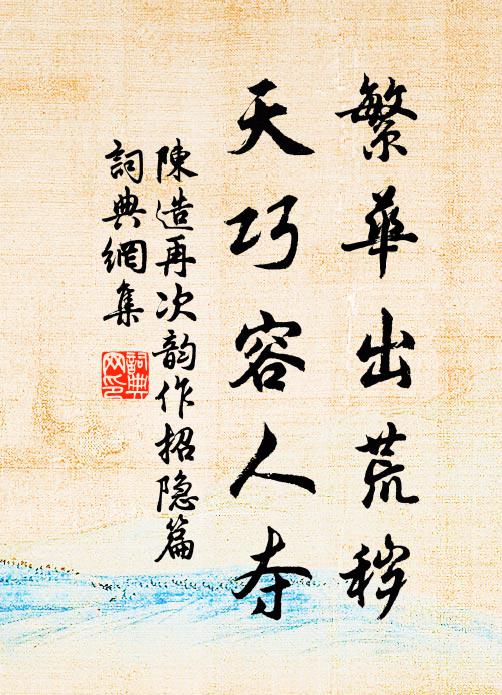 繁華出荒秽
天巧容人夺
陳造再次韵作招隐篇
詞典網集
詞典
网印